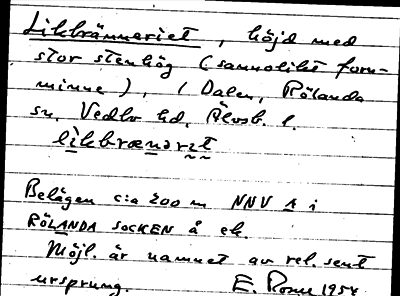 Likbränneriet, höjd med
stor stenhög (sannolikt forn-
minne), i Dalen, Rölanda
sn, Vedbo hd, Älvsb. l.
likbrænərɪt
Belägen c:a 200 m NNV A i
RÖLANDA SOCKEN å ek.
Möjl. är namnet av rel. sent
ursprung. E. 1954